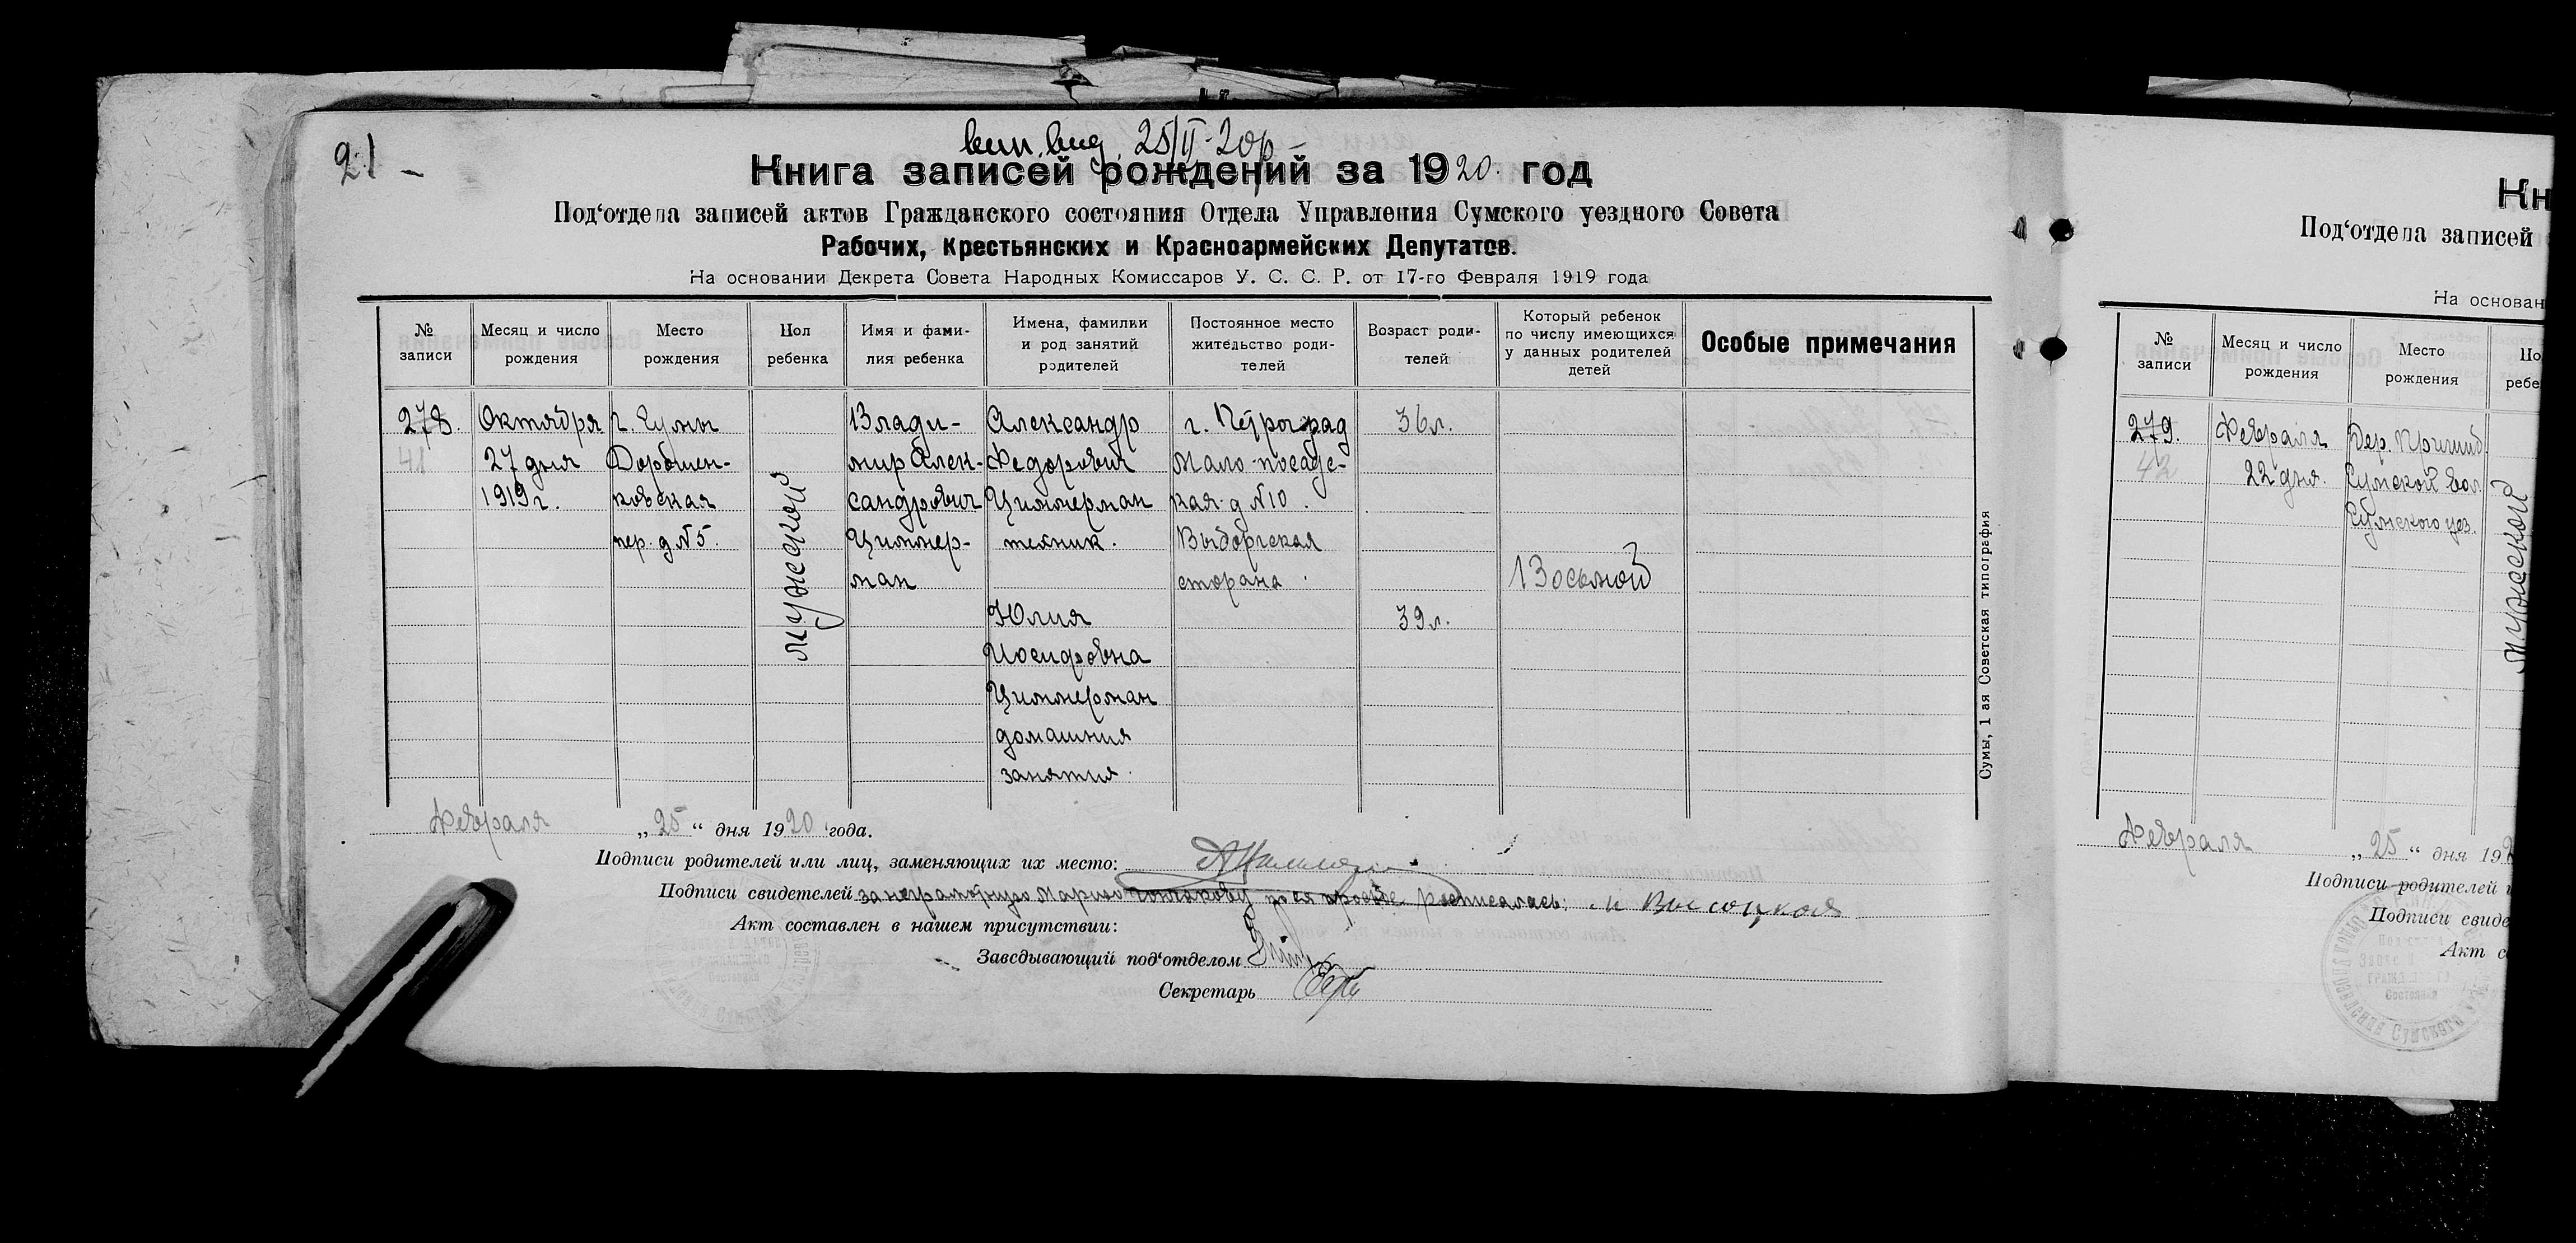 21 -
вып. вид. 25/II-20р -
Книга записей рождений за 1920 год
Под‘отдела записей актов Гражданского состояния Отдела Управления Сумского уездного Совета
Рабочих, Крестьянских и Красноармейских Депутатов.
На основании Декрета Совета Народных Комиссаров У. С. С. Р. от 17-го Февраля 1919 года
№ записи
Месяц и число рождения
Место рождения
Пол ребенка
Имя и фами-
лия ребенка
Имена, фамилии
и род занятий
родителей
Постоянное место
жительство роди-
телей
Возраст роди-
телей
Который ребенок
по числу имеющихся
у данных родителей
детей
Особые примечания
278.
41
Октября
27 дня
1919 г.
г. Сумы
Дорошен-
ковская
пер. д №5.
мужской
Влади-
мир Алек-
сандрович
Циммер-
ман
Александр
Федорович
Циммерман
техник.
Юлия
Иосифовна
Циммерман
домашния
занятия.
г. Петроград
Мало-посадс-
кая д №10.
Выборгская
сторона.
36 л.
39 л.
Восьмой
Сумы, 1 ая Советская типография
Февраля „25“ дня 1920 года.
Подписи родителей или лиц, заменяющих их место:
Подписи свидетелей за неграмотную Марию по ея просьбе росписалась: М Высоцкая
Акт составлен в нашем присутствии:
Заведывающий под‘отделом
Секретарь
Кн
Под‘отдела записей
На основан
№ записи
Месяц и число рождения
Место рождения
По
ребе
279.
42
Февраля
22 дня.
Сумской вол.
Сумского уез.
мужской
Февраля „25“ дня 192
Подписи родителей и
Подписи свиде
Акт с